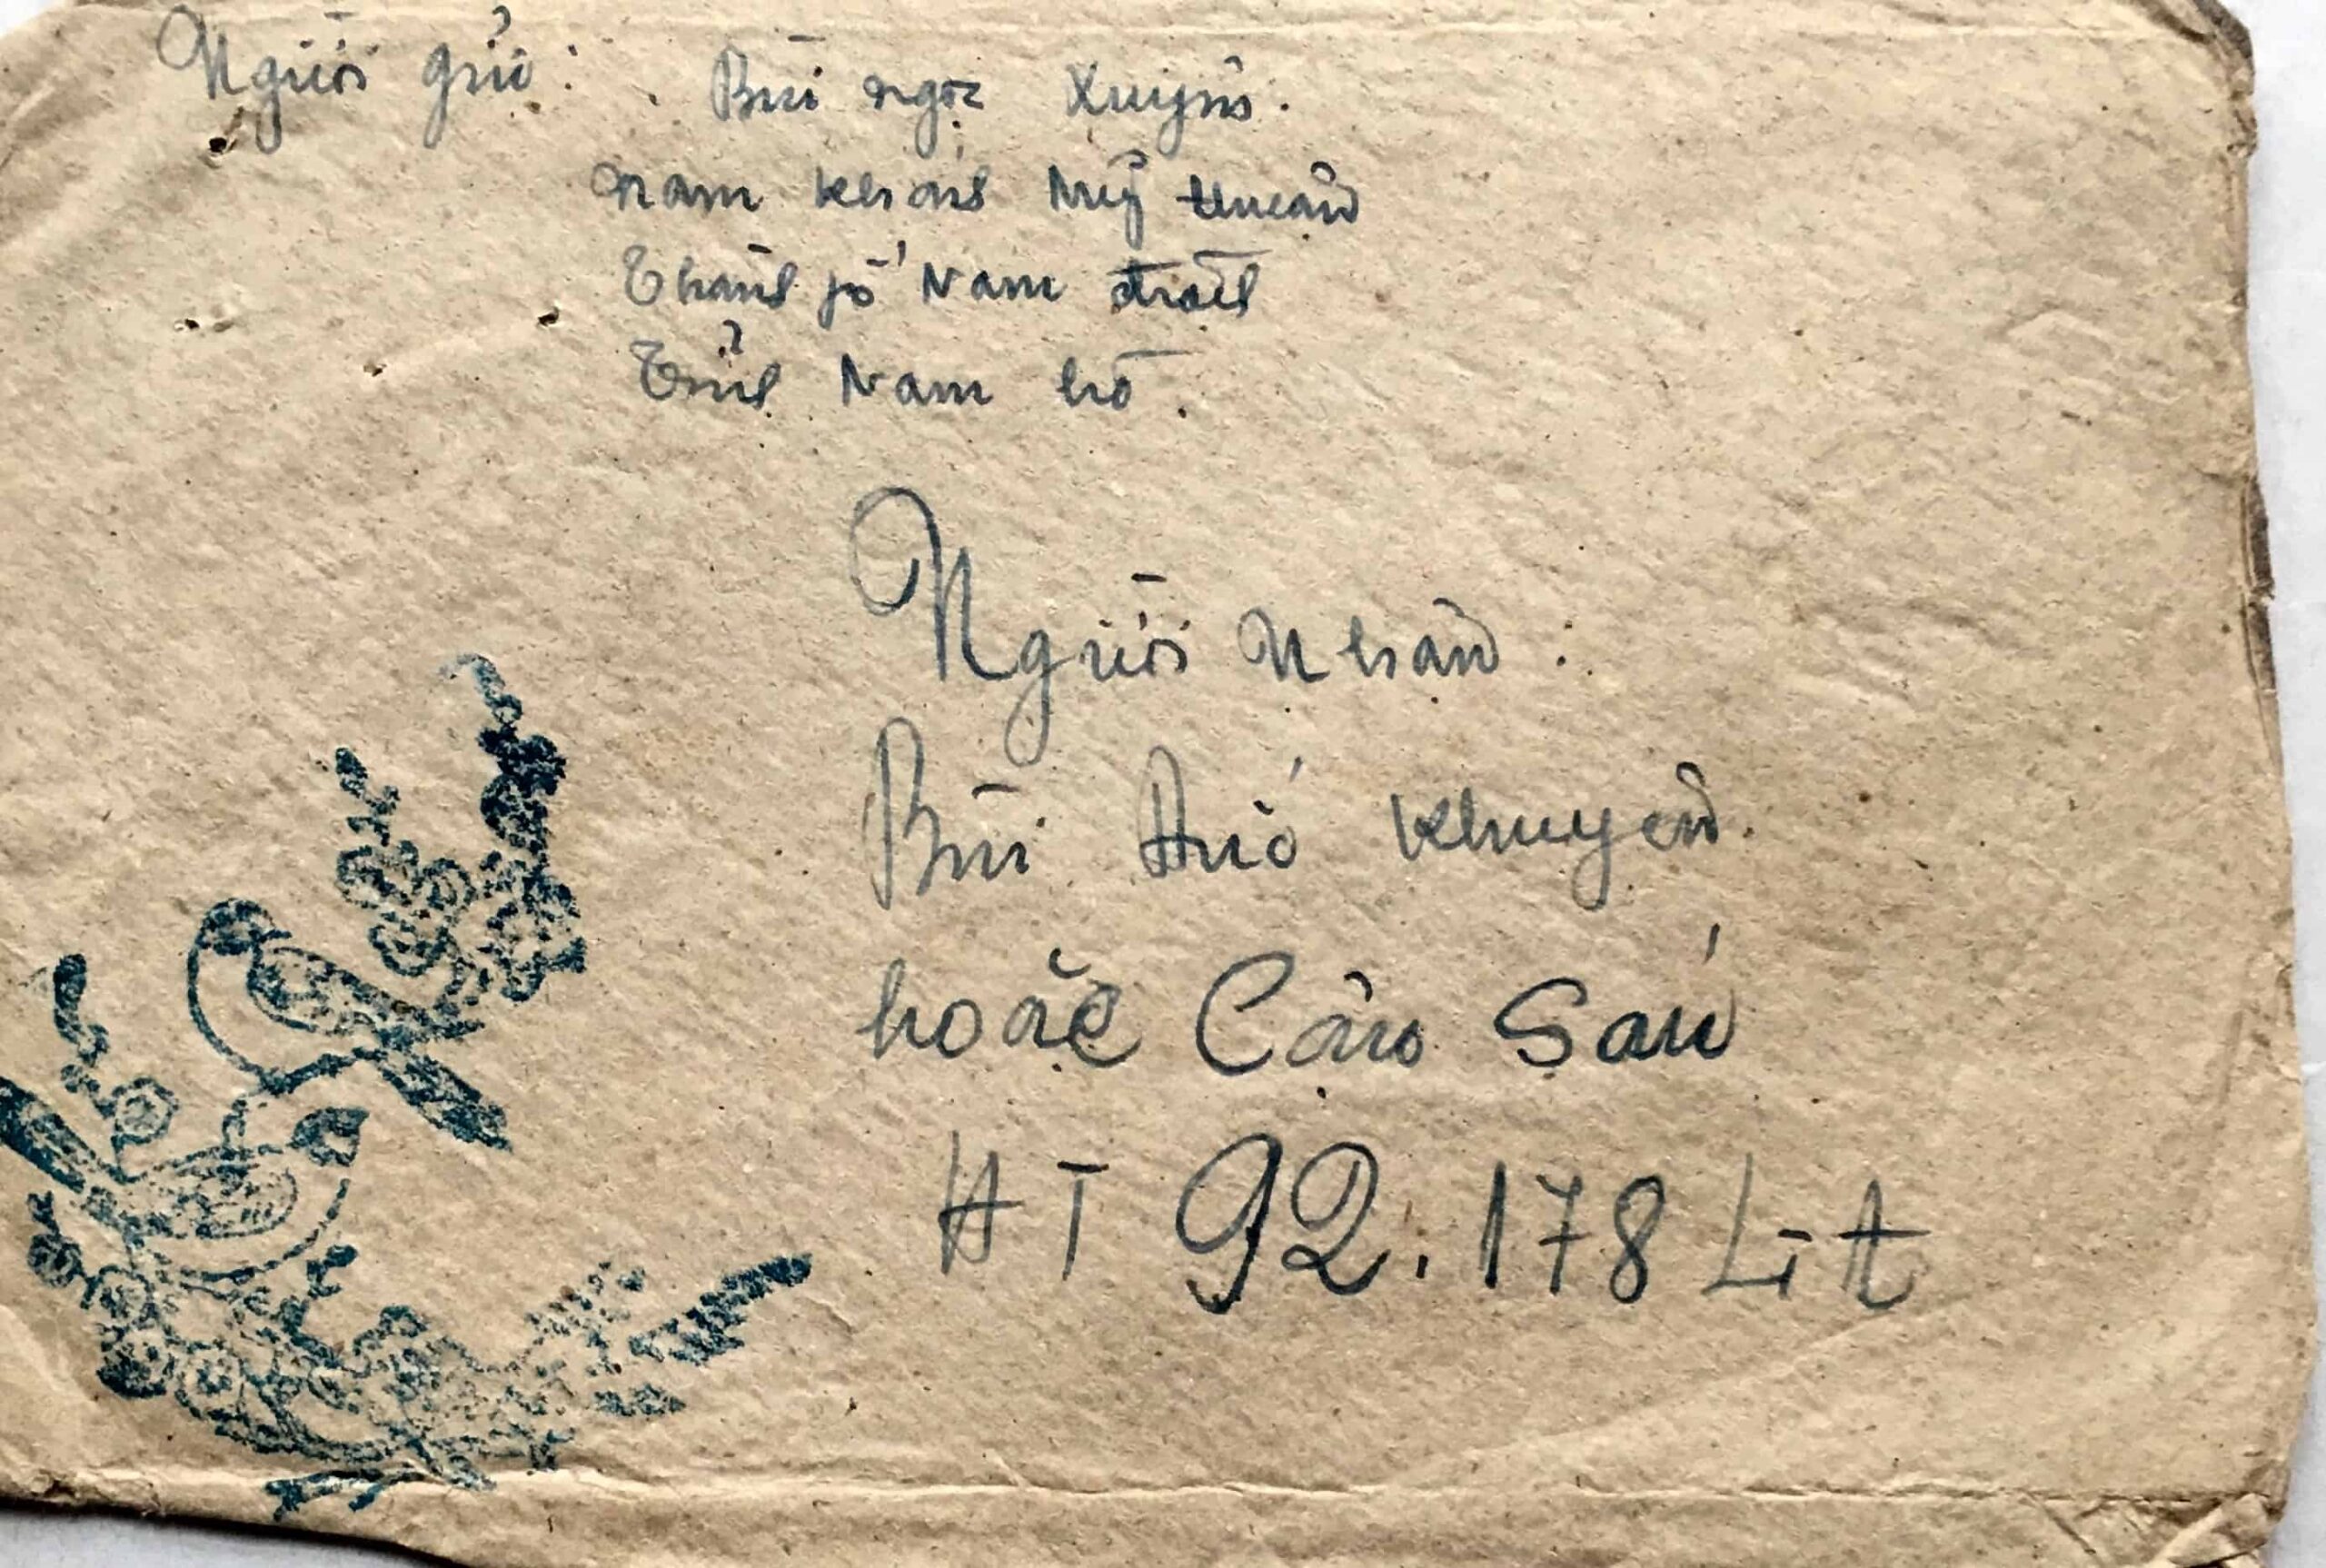 Người gửi: Bùi ngọc Xuyên.
nam khánh Mỹ thuận
Thành phố Nam định
Tỉnh Nam hà.
Người Nhận:
Bùi Đức Khuyến
hoặc Cậu Sáu
HT 92.178 L-A